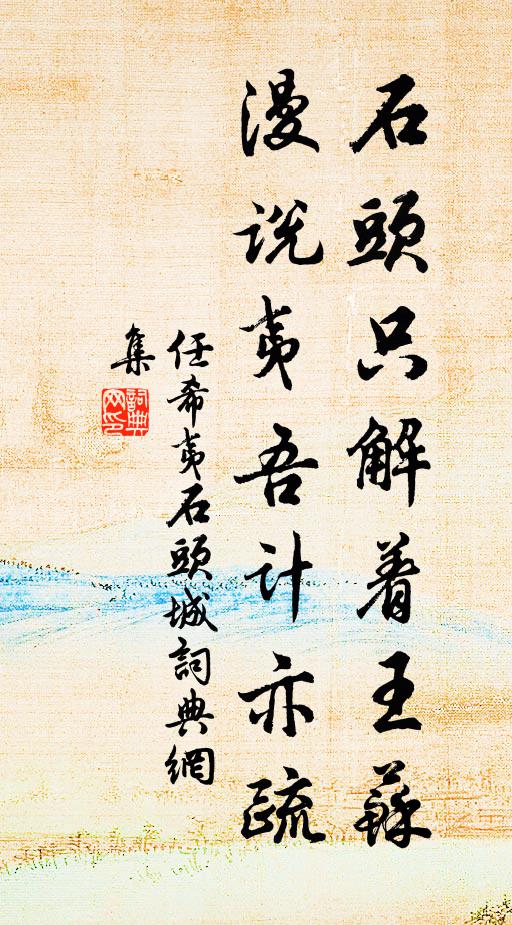 石頭只解着王蘇
漫说夷吾計亦疏
任希夷石頭城詞典網
集
詞典
网印